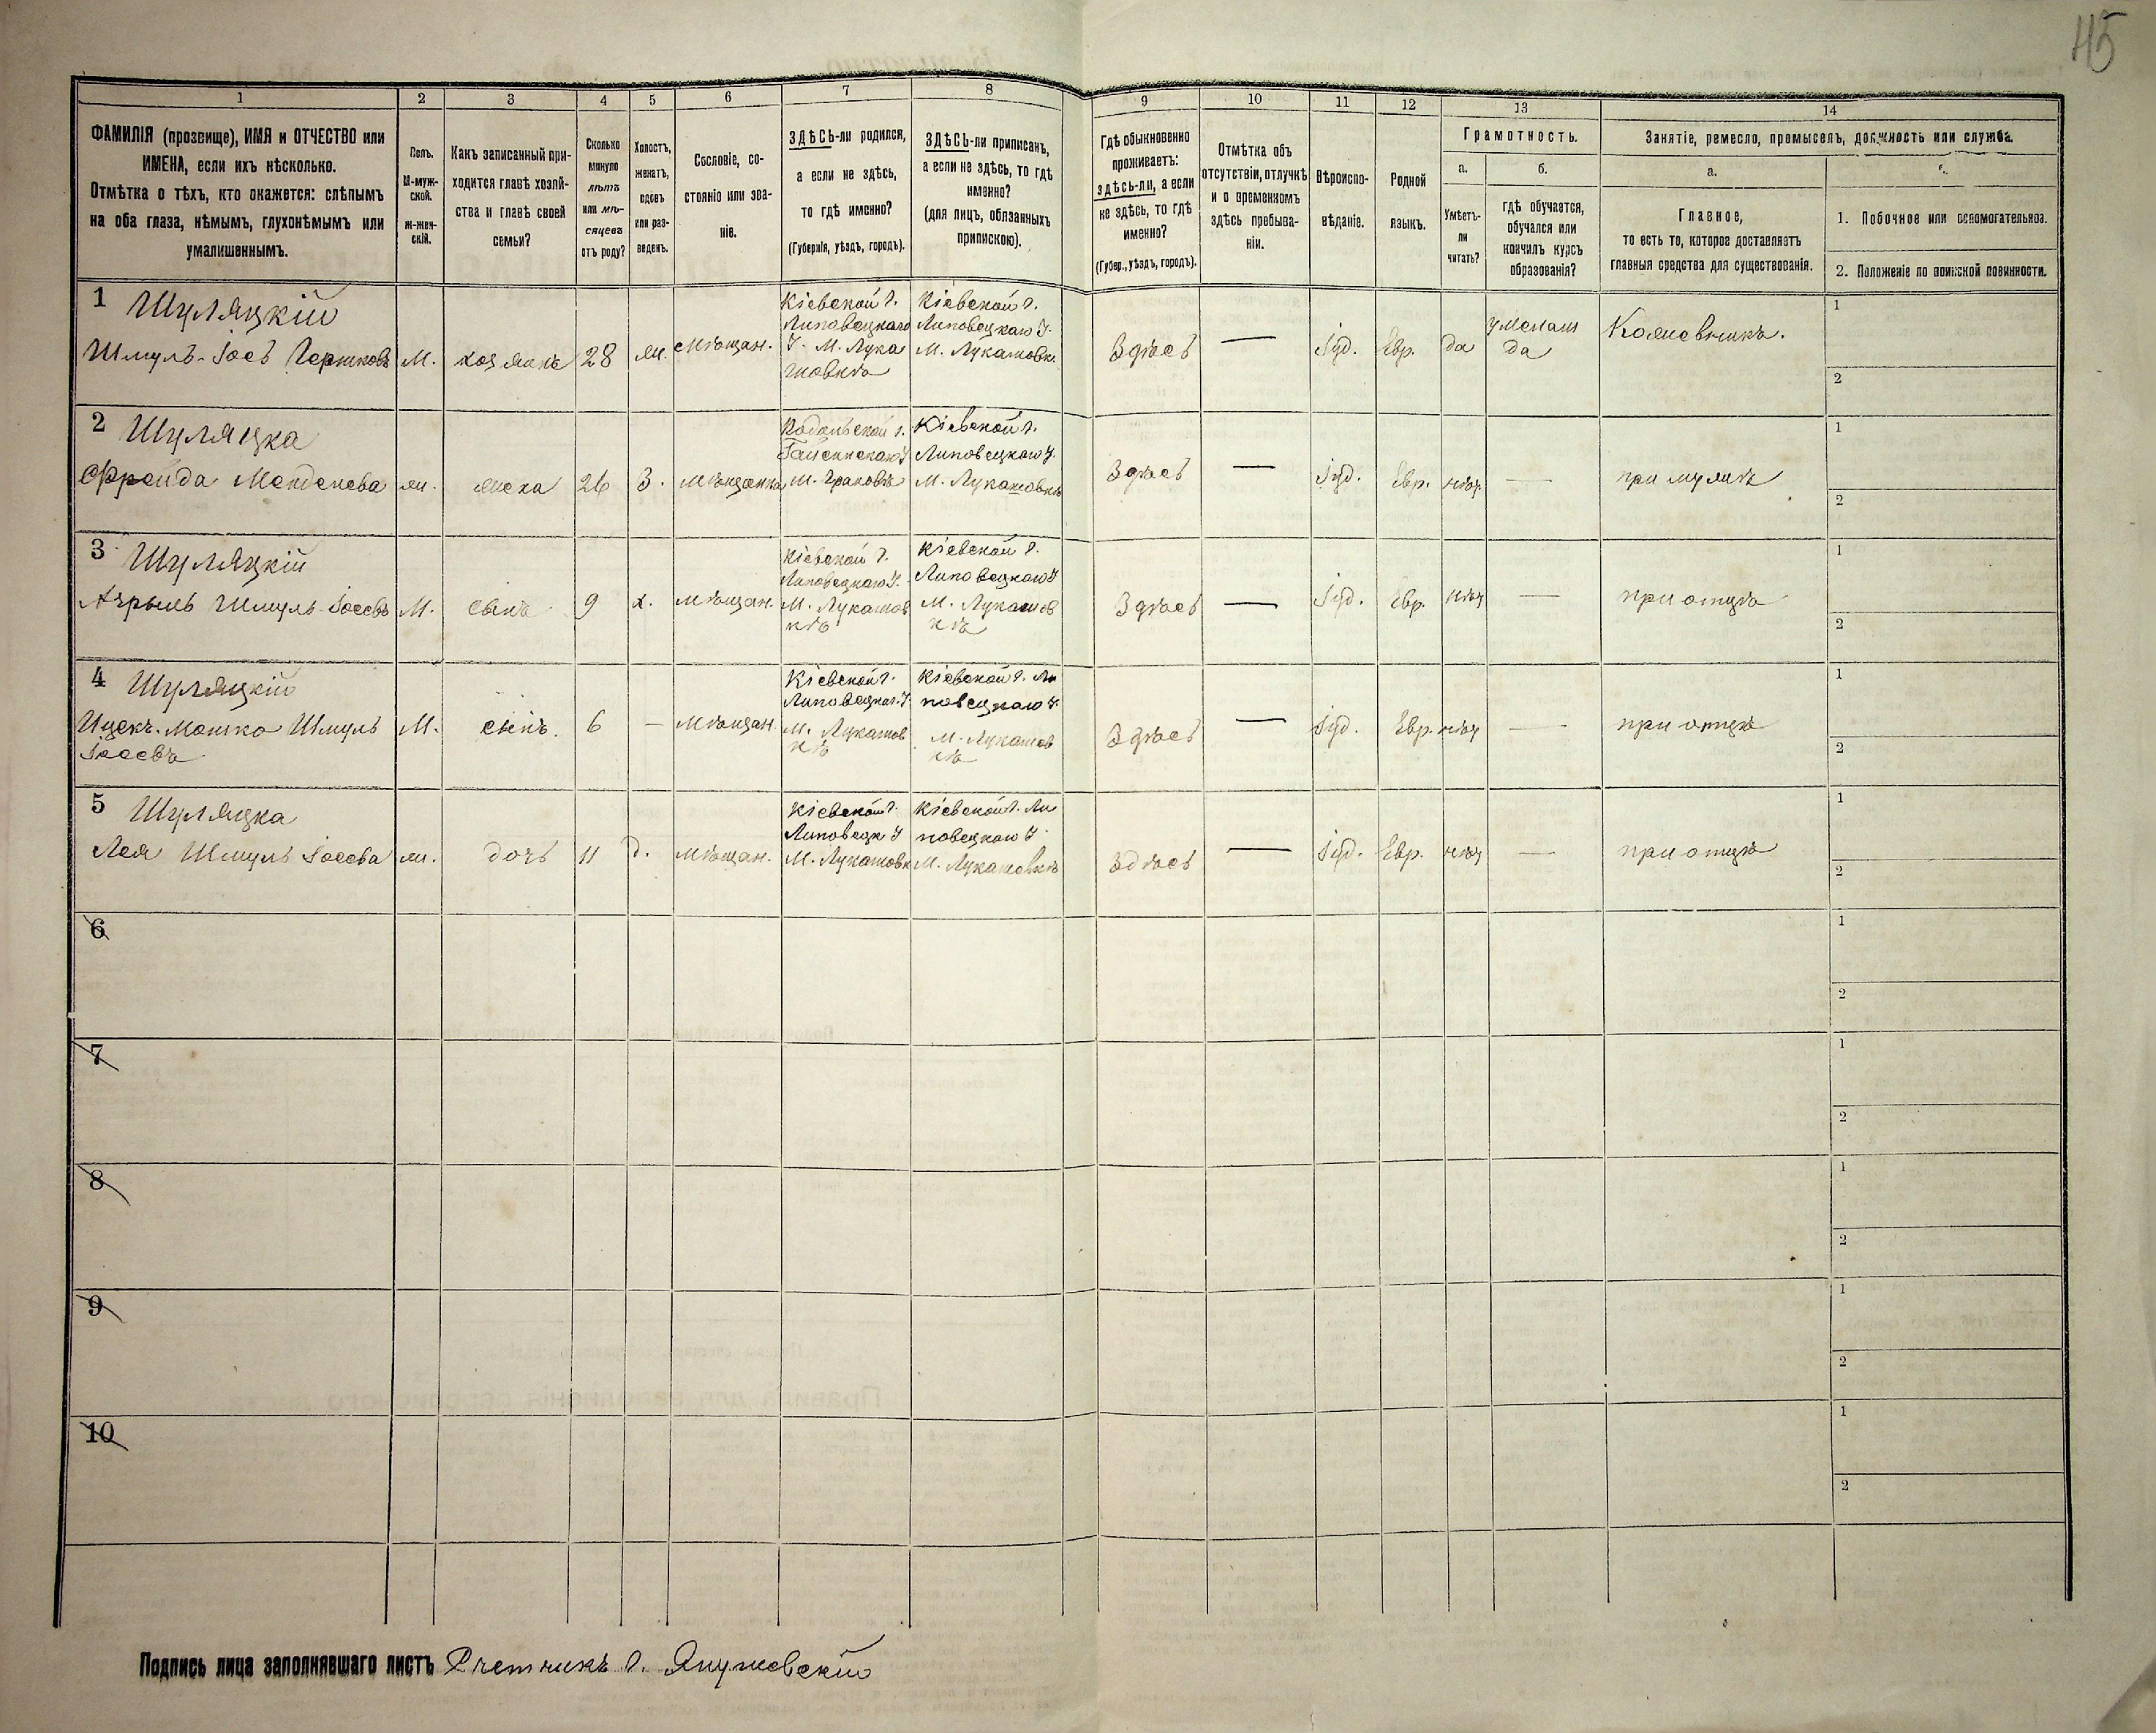 45
1 2 3 4 5 6 7 8 9 10 11 12 13 14
ФАМИЛІЯ (прозвище), ИМЯ и ОТЧЕСТВО или
ИМЕНА, если ихъ нѣсколько.
Отмѣтка о тѣхъ, кто окажется: слѣпымъ
на оба глаза, нѣмымъ, глухонѣмымъ или
умалишеннымъ.
Полъ.
М-муж-
ской.
ж-жен-
скій.
Какъ записанный при-
ходится главѣ хозяй-
ства и главѣ своей
семьи?
Сколько
минуло
лѣтъ
или мѣ-
сяцевъ
отъ роду?
Холостъ,
женатъ,
вдовъ
или раз-
веденъ.
Сословіе, со-
стояніе или зва-
ніе.
ЗДѢСЬ-ли родился,
а если не здѣсь,
то гдѣ именно?
(Губернія, уѣздъ, городъ).
ЗДѢСЬ-ли приписанъ,
а если не здѣсь, то гдѣ
именно?
(для лицъ, обязанныхъ
припискою).
Гдѣ обыкновенно
проживаетъ:
здѣсь-ли, а если
не здѣсь, то гдѣ
именно?
(Губер., уѣздъ, городъ).
Отмѣтка объ
отсутствіи, отлучкѣ
и о временномъ
здѣсь пребыва-
ніи.
Вѣроиспо-
вѣданіе.
Родной
языкъ.
Грамотность.
а.
Умѣетъ-
ли
читать?
б.
гдѣ обучается,
обучался или
кончилъ курсъ
образованія?
Занятіе, ремесло, промыселъ, должность или служба.
а.
Главное,
то есть то, которое доставляетъ
главныя средства для существованія.
1. Побочное или вспомогательное.
2. Положеніе по воинской повинности.
1 Шуляцкій
Шмуль-Іосъ Гершковъ
М.
хозяинъ
28
жн.
мѣщан.
Кіевской г.
Липовецкаго
У. М. Лука
шовкѣ
Кіевской г.
Липовецкаго У.
М. Лукашовкѣ
Здѣсь
—
Іуд.
Евр.
да
у меламд
да
Кожевникъ.
1
2
2 Шуляцка
Фрейда Менделева
жн.
жена
26
З.
мѣщанка
Подольской г.
Гайсинскаго У
Кіевской г.
Липовецкаго У.
М. Лукашовкѣ
Здѣсь
—
Іуд.
Евр.
нѣт
—
при мужѣ
1
2
3 Шуляцкій
Шмуль-Іосевъ
М.
сынъ
9
х.
мѣщан.
Кіевской г.
Липовецкаго У.
М. Лукашов
кѣ
Кіевской г.
Липовецкаго У
М. Лукашов
кѣ
Здѣсь
—
Іуд.
Евр.
нѣт
—
при отцѣ
1
2
4 Шуляцкій
Ицекъ-Мошко Шмуль
Іосевъ
М.
сынъ.
6
—
мѣщан.
Кіевской г.
Липовецкаг. У
М. Лукашов
кѣ
Кіевской г. Ли
повецкаго У.
М. Лукашов
кѣ
Здѣсь
—
Іуд.
Евр.
нѣт
—
при отцѣ
1
2
5 Шуляцка
Лея Шмуль Іосева
жн.
дочь
11
д.
мѣщан.
Кіевской г.
Липовецк У
М. Лукашовк
Кіевской г. Ли
повецкаго У
М. Лукашовкѣ
Здѣсь
—
Іуд.
Евр.
нѣт
—
при отцѣ
1
2
6
1
2
7
1
2
8
1
2
9
1
2
10
1
2
Подпись лица заполнявшаго листъ Счетчикъ Г. Янушевскій